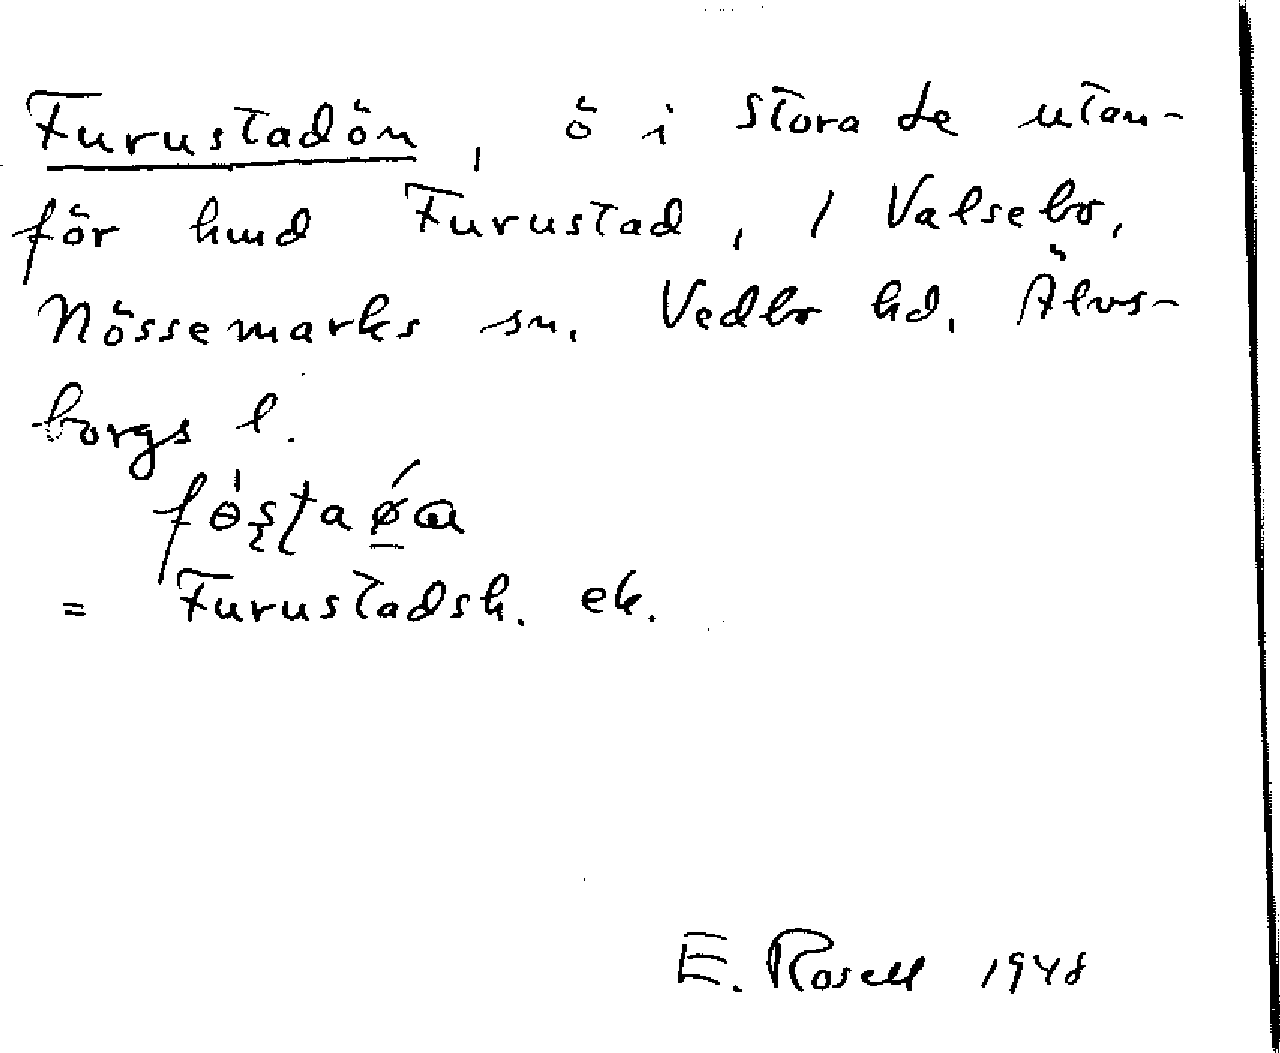 Furustadön, ö i Stora Le utan-
för hmd Furustad, i Valsebo,
Nössemarks sn. Vedbo hd. Älvs-
borgs l.
= Furustadsh. ek.
E. Rosell 1948